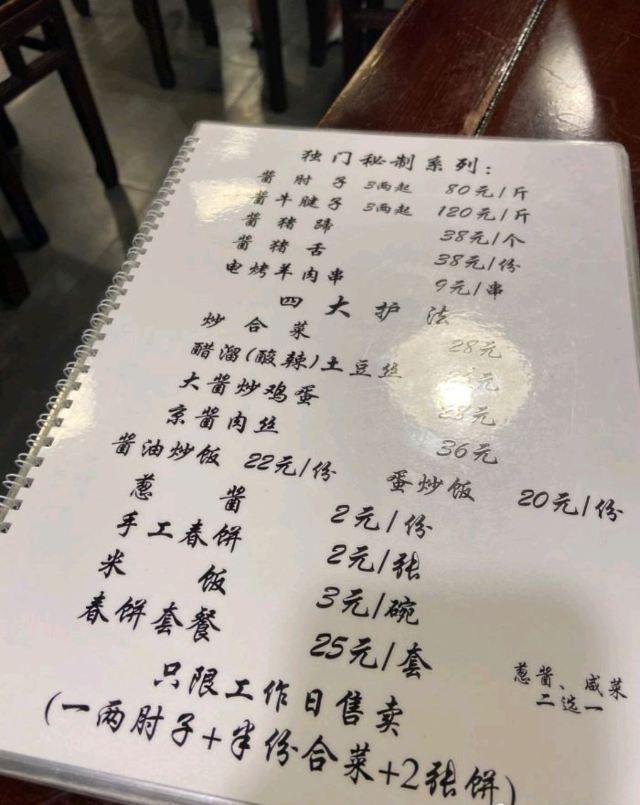 独门秘制系列:
酱肘子 3两起 80元/斤
酱牛腱子 3两起 120元/斤
酱猪蹄 38元/个
酱猪舌 38元/份
电烤羊肉串 9元/串
四大护法
炒合菜 28元
醋溜(酸辣)土豆丝 元
大酱炒鸡蛋 28元
京酱肉丝 36元
酱油炒饭 22元/份 蛋炒饭 20元/份
葱酱 2元/份
手工春饼 2元/张
米饭 3元/碗
春饼套餐 25元/套 葱酱、咸菜
二选一
只限工作日售卖
(一两肘子+半份合菜+2张饼)